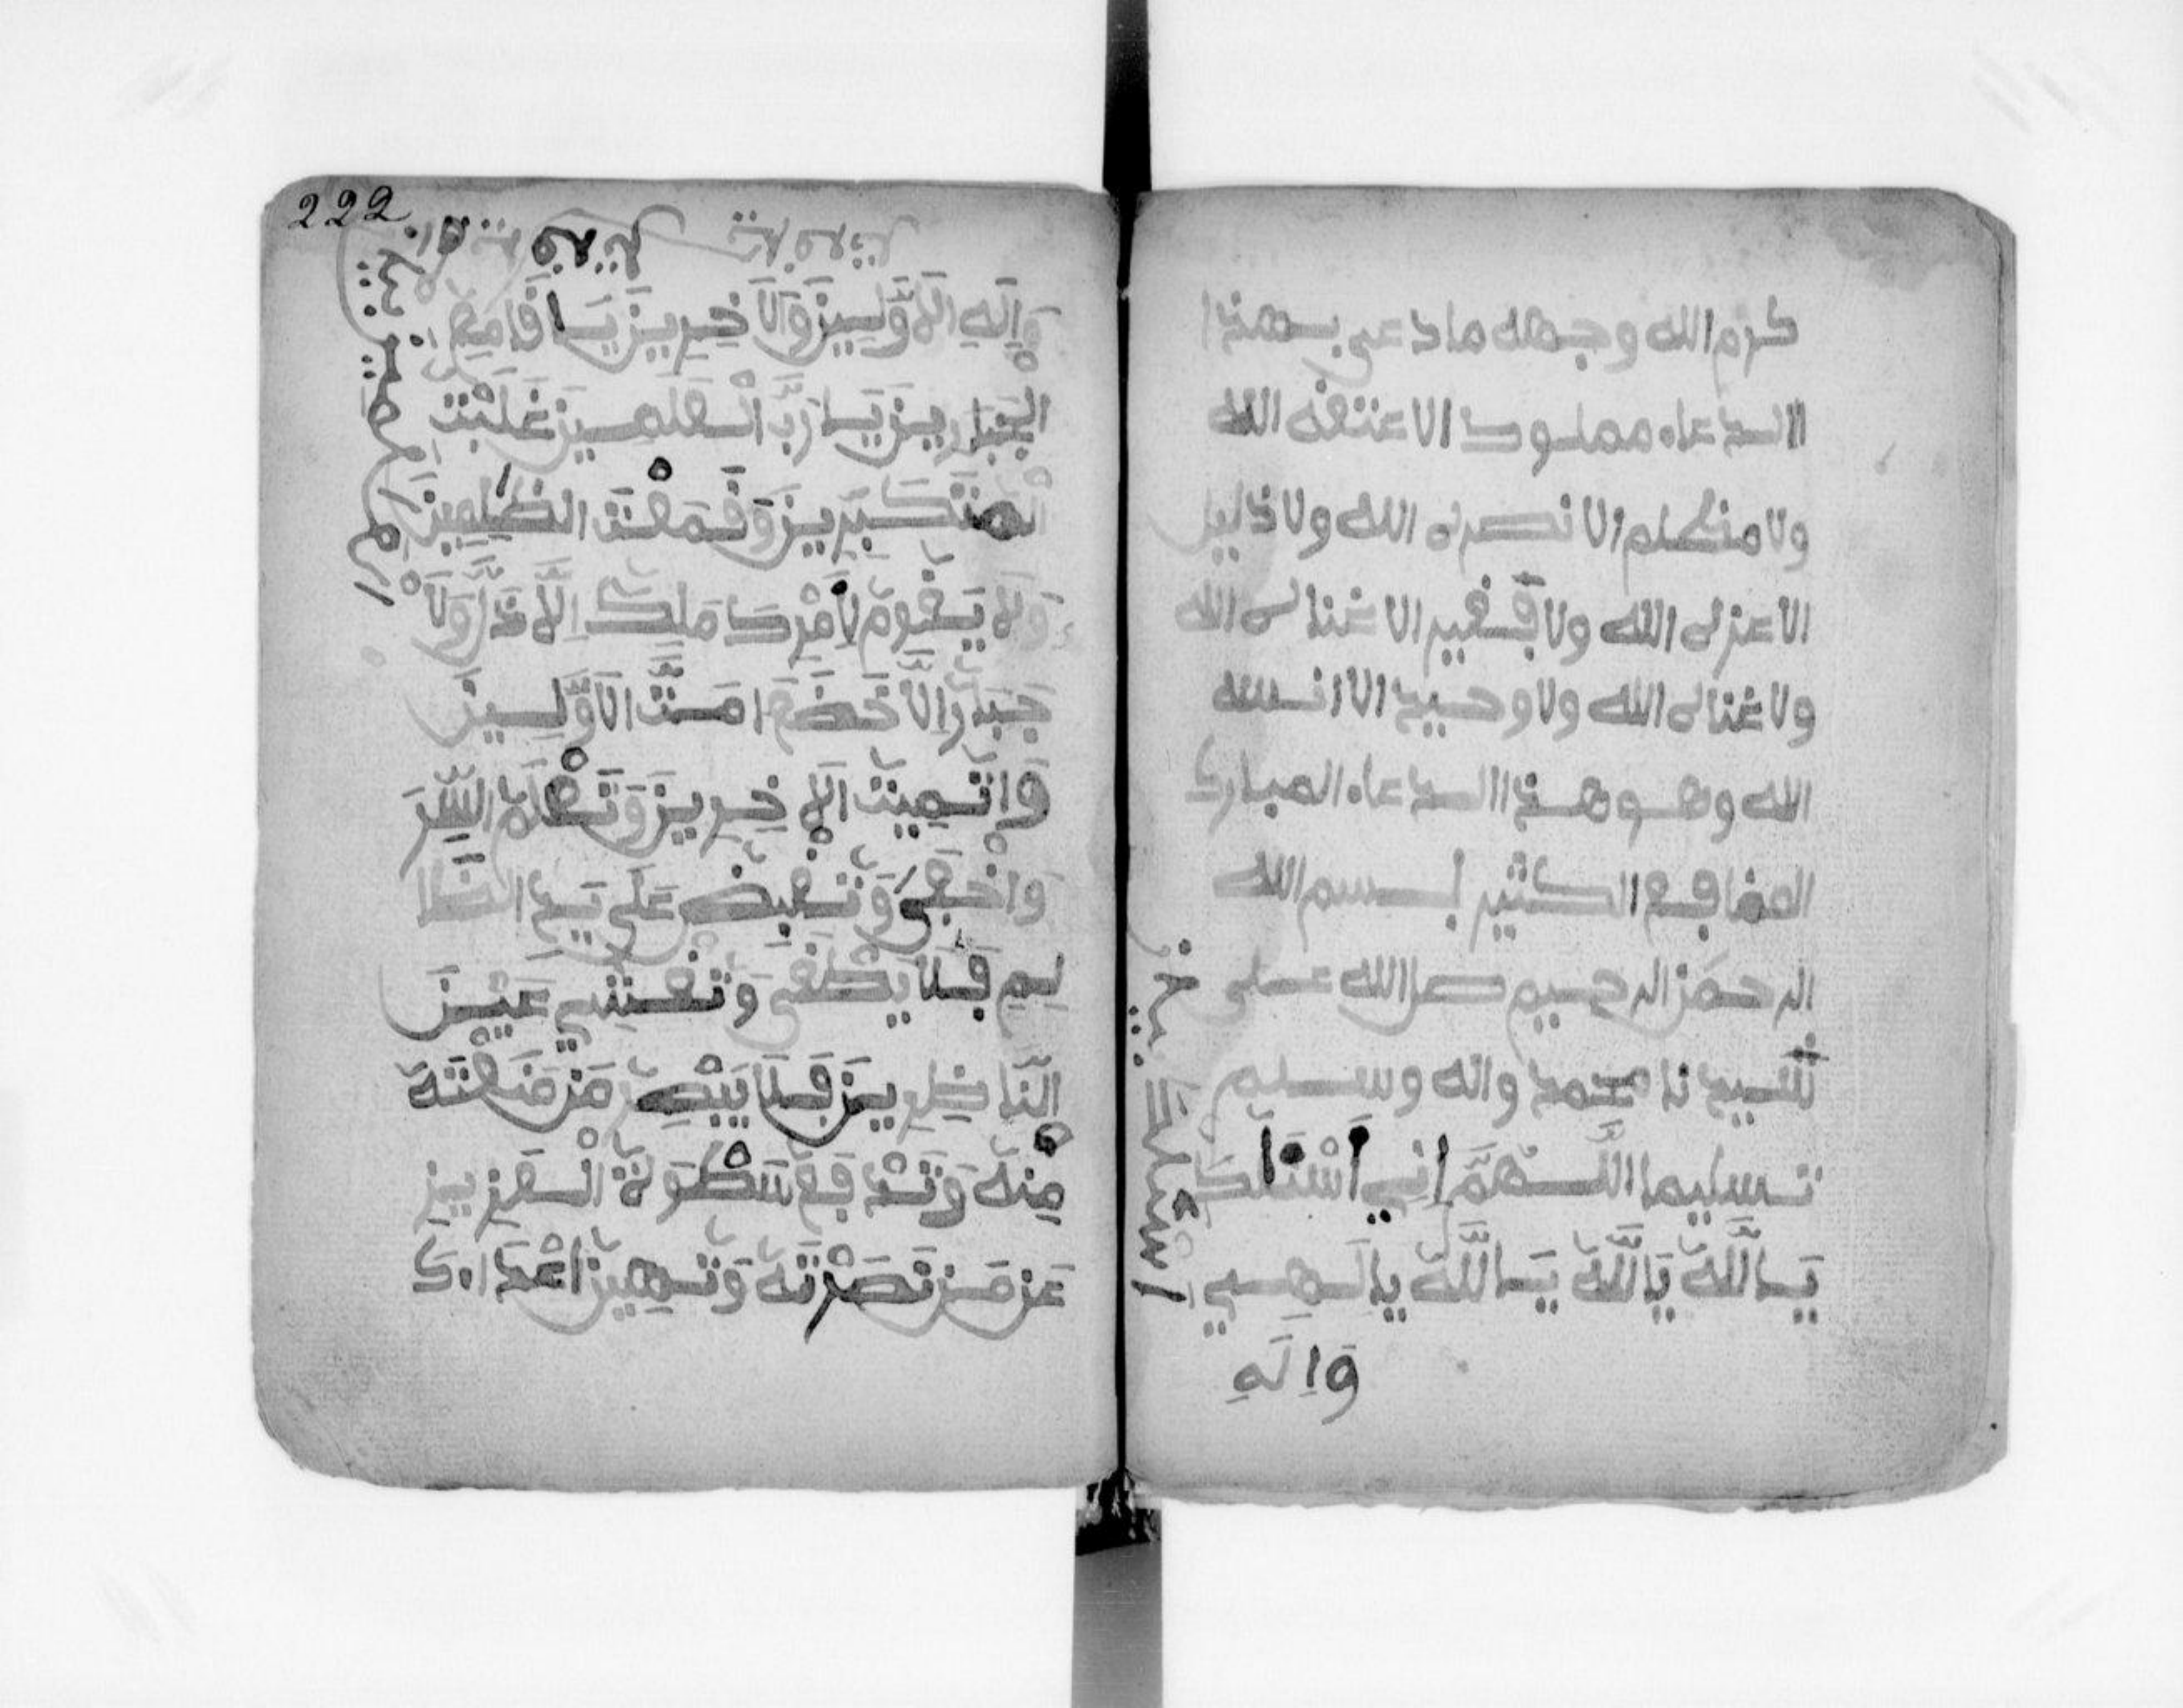 كرم الله وجهه ما دعى بهذا
الدعاء مملوك الا عتقه الله
ولا مظلم الا نصره الله ولا ذليل
الا عزله الله ولا فقير الا غناله الله
ولا غناله الله ولا وحيد الا انسه
الله وهو هذا الدعاء المبارك
الكثير بسم الله
الرحمن الرحيم صل الله على
سيدنا محمد واله وسليم
تسليما اللَّهُمَّ إِنِّي أَسْئَلُكَ
يَا اللَّهُ يَا اللَّهُ يَا اللَّهُ يا الَهِي
وَإِلَهِ
222
وَإِلَهِ الأَوَّلِينَ وَالَاخِرِينَ يَا قَامِعَ
الجَبَّارِينَ يَا رَبَّ الْعلَمِينَ غَلَبْتَ
الْمتَكَبِّرِينَ وَقَمَعْتَ الظَّلِمِينَ
وَلَا يَقُومُ لِأَمْرِكَ مَلِكٌ اِلَّا ذَلَّ وَلَا
جَبَّارٌ اِلَّا خَضَعَ امَتَّ الَاوَّلِينَ
وَاتُمِيتُ الَاخِرِينَ وَتَعْلَمُ السِّرَّ
وَاخْفَى وَتَقْبِضُ عَلَى يَدِ الظَّا
لِمِ فَلَا يَطْغَى وَتُعْمِي عَيْنَ
النَّاظِرِينَ فَلَا يَبْصِرُ مَن مَنَعْتَهُ
مِنْهُ وَتَدْفَعُ سَطْوَةَ الْعَزِيزِ
عَن مَن نَصَرْتَهُ وَتُهِينُ اعْدَاءَكَ